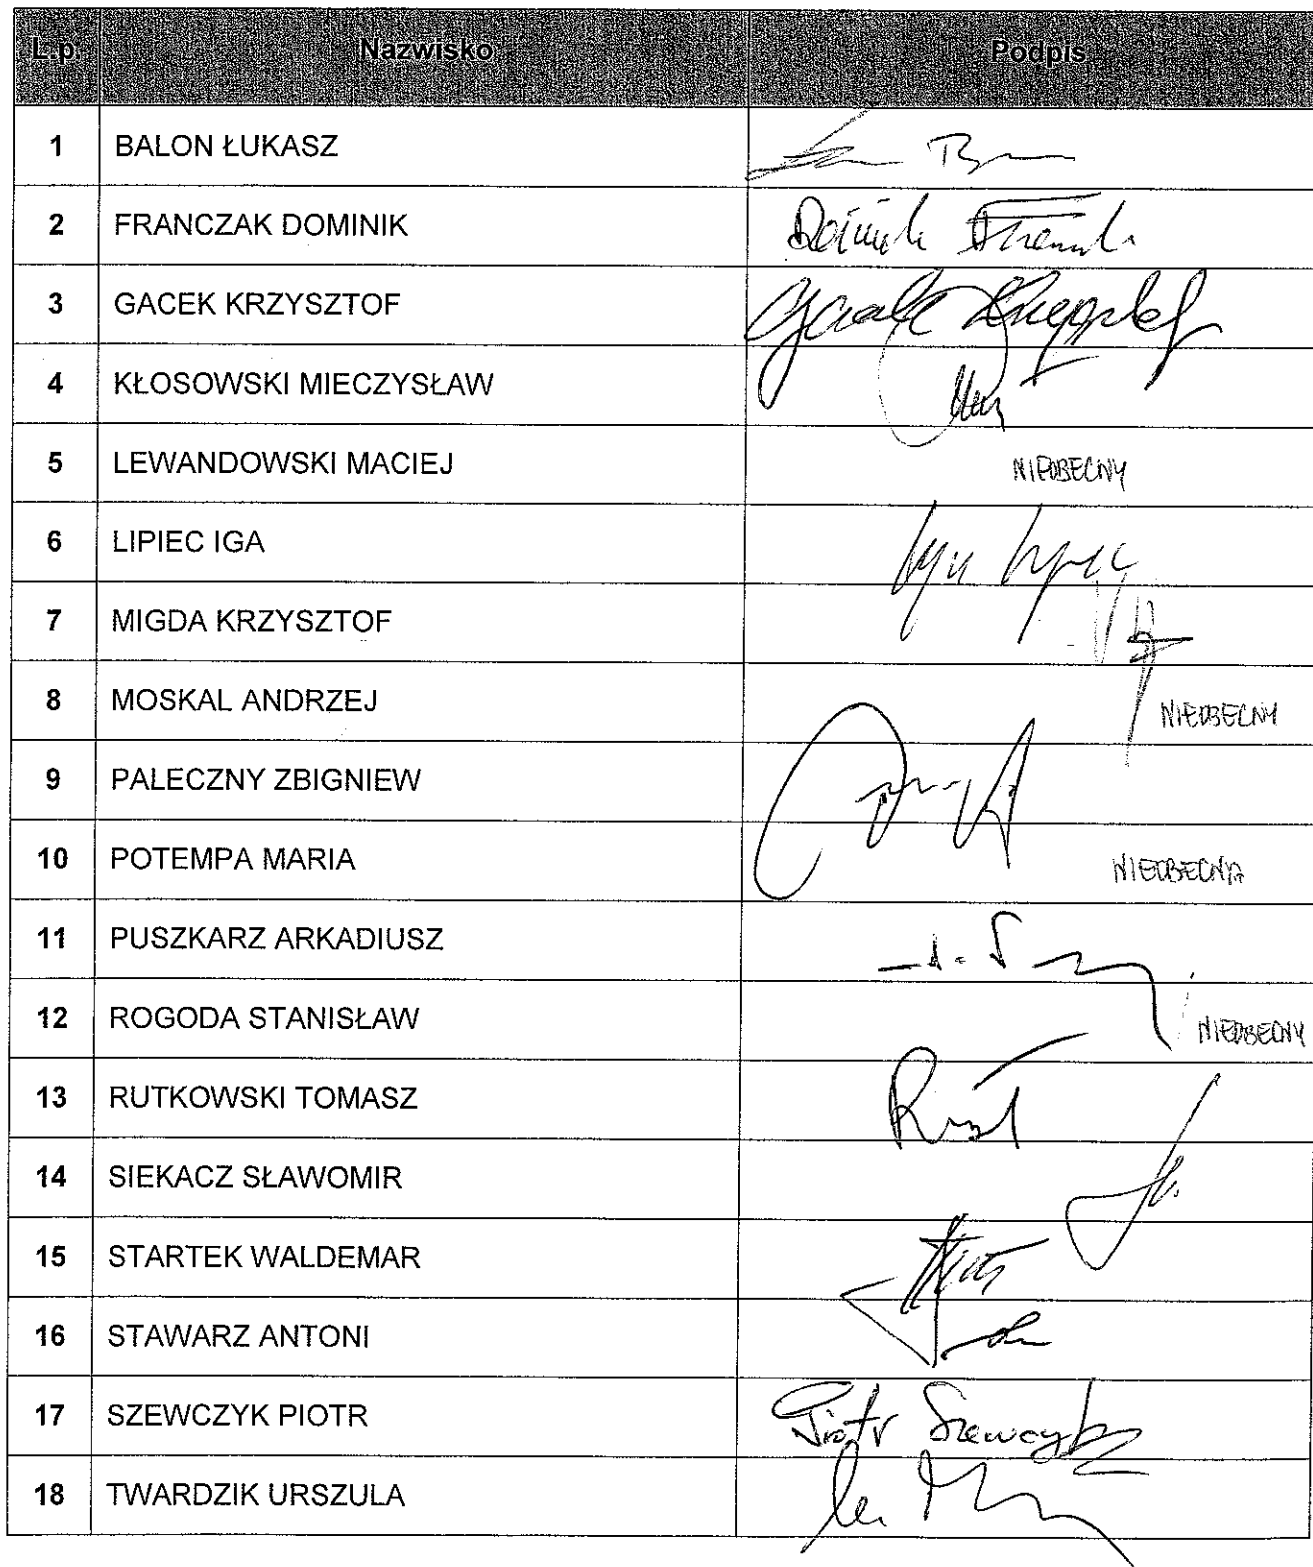 L.p. Nazwisko Podpis
1 BALON ŁUKASZ
2 FRANCZAK DOMINIK
3 GACEK KRZYSZTOF
4 KŁOSOWSKI MIECZYSŁAW
5 LEWANDOWSKI MACIEJ NIEOBECNY
6 LIPIEC IGA
7 MIGDA KRZYSZTOF
8 MOSKAL ANDRZEJ NIEOBECNY
9 PALECZNY ZBIGNIEW
10 POTEMPA MARIA NIEOBECNA
11 PUSZKARZ ARKADIUSZ
12 ROGODA STANISŁAW NIEOBECNY
13 RUTKOWSKI TOMASZ
14 SIEKACZ SŁAWOMIR
15 STARTEK WALDEMAR
16 STAWARZ ANTONI
17 SZEWCZYK PIOTR Piotr Szewczyk
18 TWARDZIK URSZULA